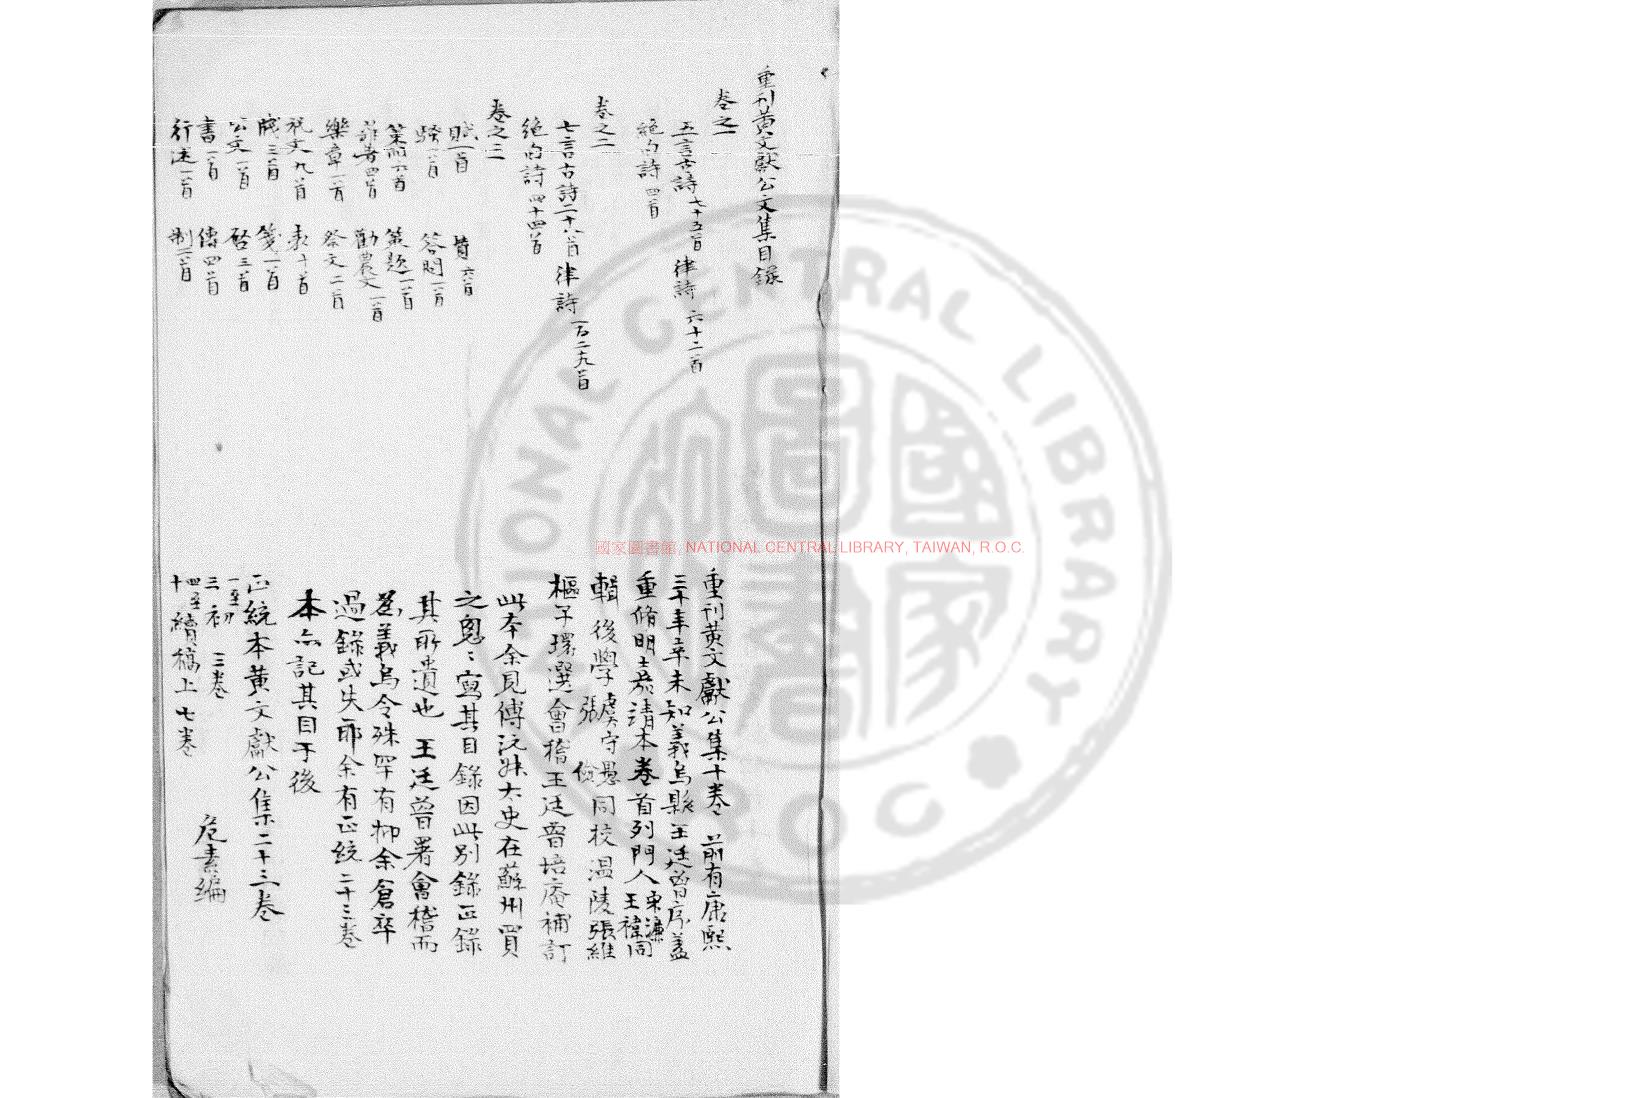 重刊黃文獻公文集目錄
卷之一
五言古詩七十五首 律詩六十二首
絕句詩四首
卷之二
七言古詩二十八首 律詩一百二十九首
絕句詩四十四首
卷之三
賦一首 贊六首
騷一首 答問一首
策問六首 策題一首
雜著四首 勸農文一首
樂章一首 祭文二首
祝文九首 表十首
牋三首 箋一首
公文一首 啓三首
書一首 傳四首
行述一首 制一首
重刊黃文獻公集十卷 前有康熙
三十年辛未知義烏縣王廷曾序蓋
重脩明嘉清本卷首列門人宋濂王褘同
輯 後學虞守愚張儉同校溫陵張維
樞子環選會稽王廷曾培庵補訂
此本余見傅沅叔太史在蘇州買
之鬼〻寫其目錄因此別錄正錄
其所遺也 王廷曾署會稽而
為義烏令殊罕有抑余倉卒
過錄或失耶余有正統二十三卷
本亦記其目于後
正統本黃文獻公集二十三卷
一至三 初 三卷 危素編
四至十 續稿上 七卷
國家圖書館, NATIONAL CENTRAL LIBRARY, TAIWAN, R.O.C.
NATIONAL CENTRAL LIBRARY
R O C
國家圖書館